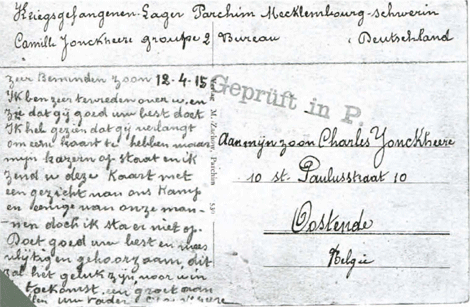 Kriegsgefangenen-Lager Parchim Mecklembourg-schwerin
Camille Jonckheere groupe 2 Bureau Deutschland
zeer Beminden zoon 12-4-15
Ik ben zeer tevreden over u, en
zie dat gij goed uw best doet
Ik heb gezien dat gij verlangt
om eene kaart te hebben waar
mijn kazern op staat en ik
zend u deze kaart met
een gezicht van ons Kamp
en eenige van onze man-
nen doch ik sta er niet op.
Doet goed uw best en wees
vlijtig en gehoorzaam, dit
zal het geluk zijn voor uw
toekomst, en groet aan
allen uw vader
Geprüft in P.
Verlag M. Zachow, Parchim
Aan mijn zoon Charles Jonckheere
10 st. Paulusstraat 10
Oostende
Belgie